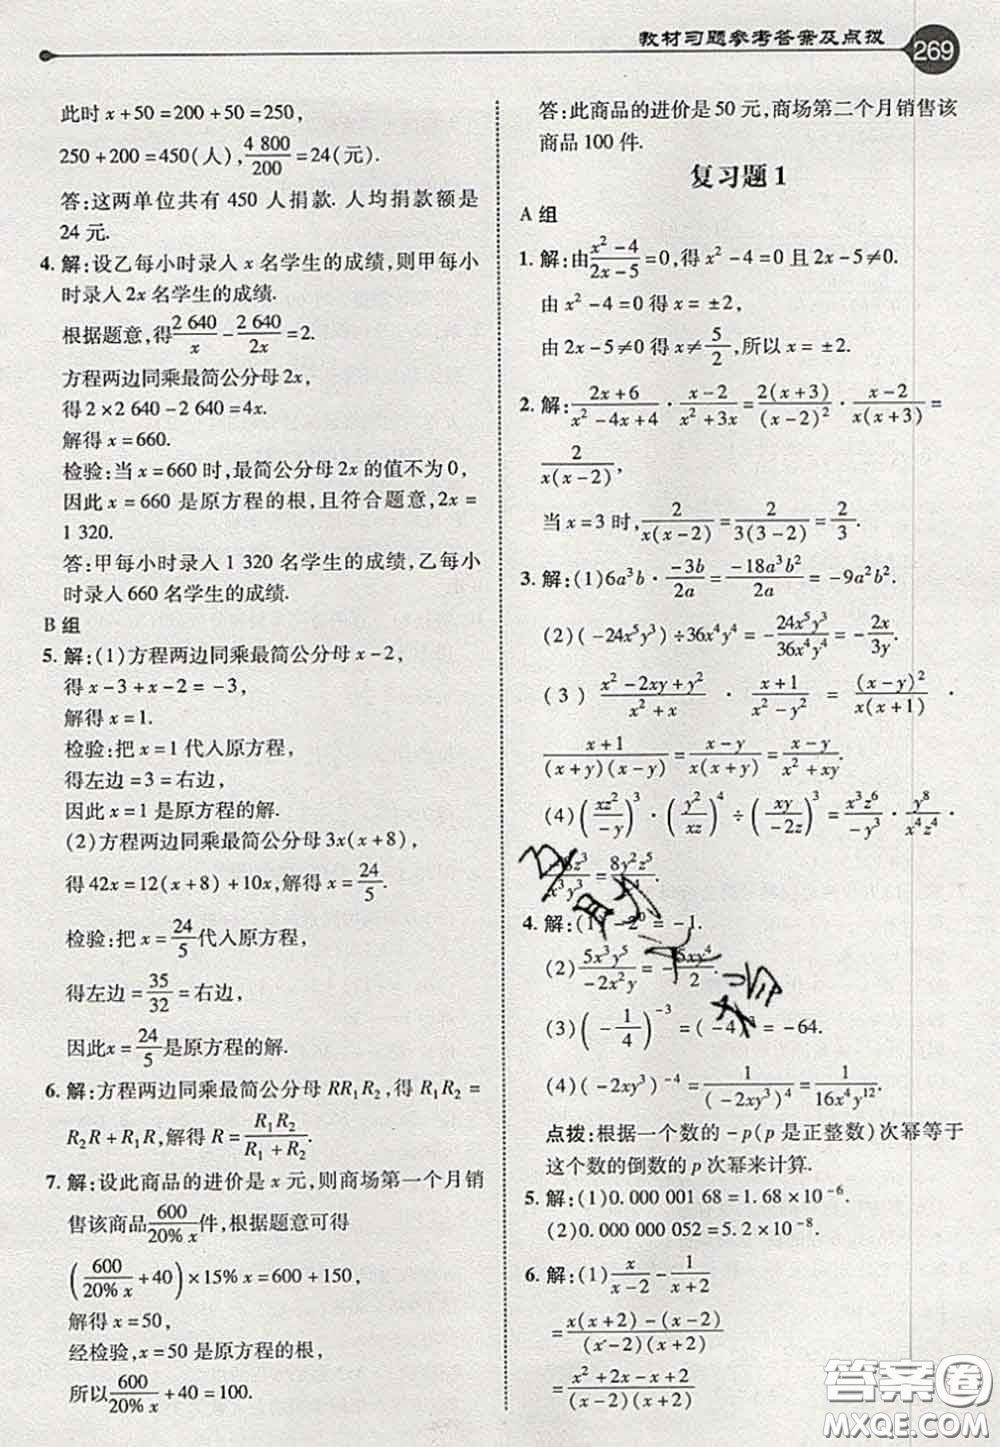 教材习题参考答案及点拨 269
此时 x+50=200+50=250,
250+200=450(人), 4 800/200=24(元).
答:这两单位共有 450 人捐款. 人均捐款额是
24 元.
4. 解:设乙每小时录入 x 名学生的成绩,则甲每小
时录入 2x 名学生的成绩.
根据题意,得 2 640/x − 2 640/2x = 2.
方程两边同乘最简公分母 2x,
得 2×2 640−2 640=4x.
解得 x=660.
检验:当 x=660 时,最简公分母 2x 的值不为 0,
因此 x=660 是原方程的根,且符合题意,2x=
1 320.
答:甲每小时录入 1 320 名学生的成绩,乙每小
时录入 660 名学生的成绩.
B 组
5. 解:(1)方程两边同乘最简公分母 x−2,
得 x−3+x−2=−3,
解得 x=1.
检验:把 x=1 代入原方程,
得左边=3=右边,
因此 x=1 是原方程的解.
(2)方程两边同乘最简公分母 3x(x+8),
得 42x=12(x+8)+10x,解得 x=24/5.
检验:把 x=24/5 代入原方程,
得左边=35/32=右边,
因此 x=24/5 是原方程的解.
6. 解:方程两边同乘最简公分母 RR₁R₂,得 R₁R₂=
R₂R+R₁R,解得 R=R₁R₂/(R₁+R₂).
7. 解:设此商品的进价是 x 元,则商场第一个月销
售该商品 600/(20% x) 件,根据题意可得
(600/(20% x)+40)×15% x=600+150,
解得 x=50,
经检验,x=50 是原方程的根,
所以 600/(20% x)+40=100.
答:此商品的进价是 50 元,商场第二个月销售该
商品 100 件.
复习题 1
A 组
1. 解:由 (x²−4)/(2x−5)=0,得 x²−4=0 且 2x−5≠0.
由 x²−4=0 得 x=±2,
由 2x−5≠0 得 x≠5/2,所以 x=±2.
2. 解: (2x+6)/(x²−4x+4) · (x−2)/(x²+3x) = 2(x+3)/(x−2)² · (x−2)/(x(x+3)) =
2/(x(x−2)),
当 x=3 时, 2/(x(x−2)) = 2/(3(3−2)) = 2/3.
3. 解:(1)6a³b · (−3b)/(2a) = (−18a³b²)/(2a) = −9a²b².
(2)(−24x⁵y³)÷36x⁴y⁴ = −24x⁵y³/36x⁴y⁴ = −2x/3y.
(3) (x²−2xy+y²)/(x²+x) · (x+1)/(x²−y²) = (x−y)²/(x(x+1)) ·
(x+1)/((x+y)(x−y)) = (x−y)/(x(x+y)) = (x−y)/(x²+xy).
(4)(xz²/−y)³ · (y²/xz)⁴ ÷ (xy/−2z)³ = x³z⁶/−y³ · y⁸/x⁴z⁴ ·
−8z³/x³y³ = 8y²z⁵/
4. 解:(1)−2⁰=−1.
(2) 5x³y⁵/−2x²y = −5xy⁴/2.
(3)(−1/4)⁻³=(−4)³=−64.
(4)(−2xy³)⁻⁴ = 1/(−2xy³)⁴ = 1/16x⁴y¹².
点拨:根据一个数的 −p(p 是正整数)次幂等于
这个数的倒数的 p 次幂来计算.
5. 解:(1)0.000 001 68=1.68×10⁻⁶.
(2)0.000 000 052=5.2×10⁻⁸.
6. 解:(1) x/(x−2) − 1/(x+2)
= (x(x+2)−(x−2))/((x−2)(x+2))
= (x²+2x−x+2)/((x−2)(x+2))
答案圈
MXQE.COM